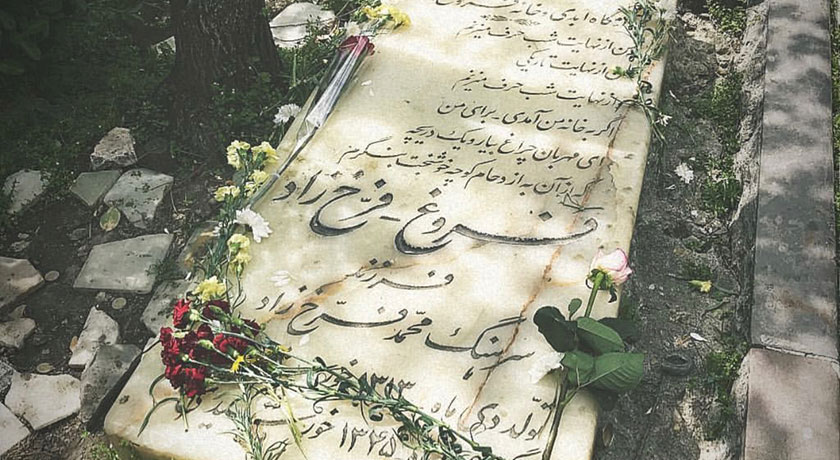 من از نهایت شب حرف میزنم
من از نهایت تاریکی
و از نهایت شب حرف میزنم
اگر به خانه من آمدی برای من
ای مهربان چراغ بیار و یک دریچه
که از آن به ازدحام کوچه خوشبخت بنگرم
فروغ فرخ زاد
فرزند
سرهنگ محمد فرخ زاد
تولد دی ماه ۱۳۱۳
۱۳۴۵